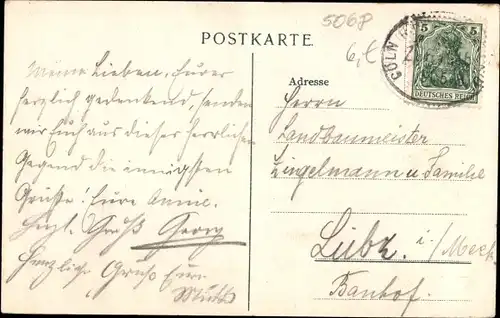 5068
6,-
POSTKARTE.
5 5
DEUTSCHES REICH
CÖLN
Adresse
Meine Lieben, Eurer
herzlich gedenkend, senden
wir Euch aus dieser herrlichen
Gegend die innigsten
Grüsse! Eure Annie.
Herzl. Gruß Georg
Herzliche Grüße Eure
Mutter
Herrn
Landbaumeister
Zingelmann u Familie
Lübz. i./Meck
Banhof.